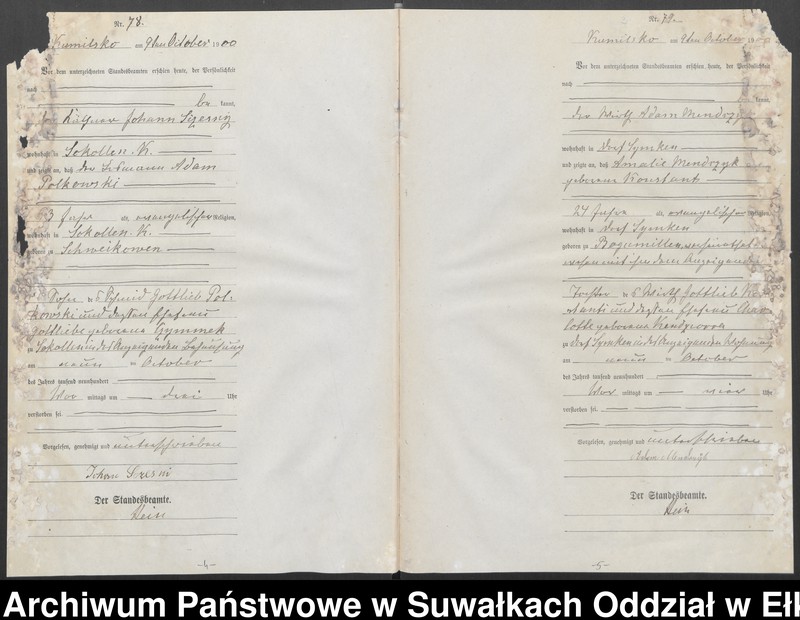 Nr. 78.
Kumilsko am 9ten October 1900
Vor dem unterzeichneten Standesbeamten erschien heute, der Persönlichkeit
nach
be kannt,
der Käthner Johann Sczesny
wohnhaft in Sokollen K.
und zeigte an, daß der Losmann Adam
Polkowski
3 Jahre alt, evangelischer Religion,
wohnhaft in Sokollen K.
geboren zu Schweikowen
Sohn des Schmid Gottlieb Pol-
kowski und dessen Ehefrau
Gottliebe geborene Gymmek
zu Sokollen in des Anzeigenden Behausung
am neun ten October
des Jahres tausend neunhundert
Vor mittags um drei Uhr
verstorben sei.
Vorgelesen, genehmigt und unterschrieben
Johann
Der Standesbeamte.
Hein
-4-
Nr. 79.
Kumilsko am 9ten October 1900
Vor dem unterzeichneten Standesbeamten erschien heute, der Persönlichkeit
nach
kannt,
der Wirth Adam Mendrzyk
wohnhaft in Dorf Symken
und zeigte an, daß Amalie Mendrzyk
geborene Konstant
27 Jahre alt, evangelischer Religion,
wohnhaft in Dorf Symken
geboren zu Bogumillen, verheirathet
gewesen mit ihm dem Anzeigenden
Tochter des Wirth Gottlieb
und dessen Ehefrau Char-
lotte geborene
zu Dorf Symken in des Anzeigenden Wohnung
am neun ten October
des Jahres tausend neunhundert
Vor mittags um vier Uhr
verstorben sei.
Vorgelesen, genehmigt und unterschrieben
Adam Mendrzyk
Der Standesbeamte.
Hein
-5-
Archiwum Państwowe w Suwałkach Oddział w Ełk